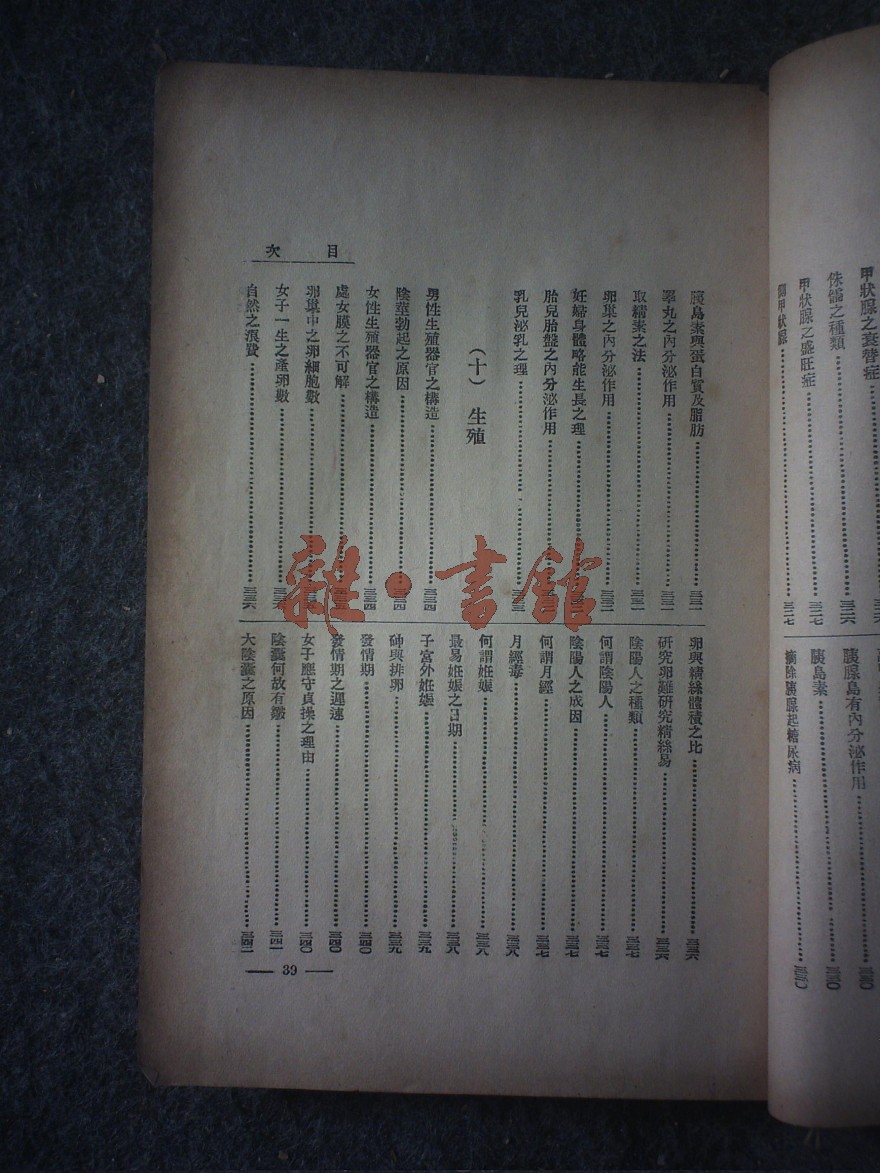 目次
胰島素與蛋白質及脂肪
睪丸之內分泌作用
取精素之法
卵巢之內分泌作用
妊婦身體略能生長之理
胎兒胎盤之內分泌作用
乳兒泌乳之理
(十) 生殖
男性生殖器官之構造 三三四
陰莖勃起之原因 三三四
女性生殖器官之構造 三三四
處女膜之不可解
卵巢中之卵細胞數
女子一生之產卵數
自然之浪費 三三六
卵與精絲體積之比 三三六
研究卵難研究精絲易 三三六
陰陽人之種類 三三七
何謂陰陽人 三三七
陰陽人之成因 三三七
何謂月經 三三七
月經毒 三三八
何謂妊娠 三三八
最易妊娠之日期 三三八
子宮外妊娠 三三九
砷與排卵 三三九
發情期 三四〇
發情期之遲速 三四〇
女子應守貞操之理由 三四〇
陰囊何故有皺 三四一
大陰囊之原因
39
甲狀腺之衰替症
侏儒之種類 三二六
甲狀腺之盛旺症 三二七
副甲狀腺 三二七
胰腺島有內分泌作用 三三〇
胰島素 三三〇
摘除胰腺起糖尿病 三三〇
雜·書館